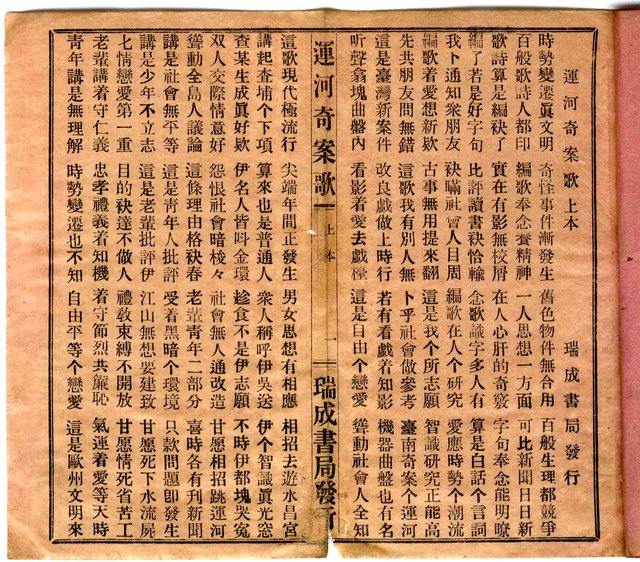 運河奇案歌上本 瑞成書局發行
時勢變遷眞文明 奇怪事件漸發生 舊色物件無合用 百般生理都競爭
百般歌詩人都印 編歌奉念養精神 一人思想一方面 可比新聞日日新
歌詩算是編袂了 實在有影無校屑 在人心肝的奇竅 字句奉念能明瞭
編了若是好字句 比評讀書袂恰輸 念歌識字多人有 算是白話个言詞
我卜通知衆朋友 袂瞞社會人目周 編歌在人个研究 愛應時勢个潮流
編歌着愛想新欵 古事無用提來翻 這是我个所志願 智識研究正能高
先共朋友問無錯 這歌我有別人無 卜乎社會做參考 臺南奇案个運河
這是臺灣新案件 改良戲做上時行 若有看戲着知影 機器曲盤也有名
听聲翕塊曲盤內 看影着愛去戲檯 這是自由个戀愛 聳動社會人全知
運河奇案歌 上本 一 瑞成書局發行
這歌現代極流行 尖端年間正發生 男女思想有相應 相招去遊水昌宮
講起查埔个下項 算來也是普通人 衆人稱呼伊吳送 伊个智識眞光窓
查某生成眞好欵 伊名人皆呌金環 趁食不是伊志願 不時伊都塊哭寃
双人交際情意好 怨恨社會暗梭々 社會無人通改造 甘愿相招跳運河
聳動全島人議論 這條理由格袂春 老輩靑年二部分 喜時各有刊新聞
講是社會無平等 這是靑年人批評 受着黑暗个環境 只款問題卽發生
講是少年不立志 這是老輩批評伊 江山無想要建致 甘愿死下水流屍
七情戀愛第一重 目的袂達不做人 禮敎束縛不開放 甘愿情死省苦工
老輩講着守仁義 忠孝禮義着知機 着守節烈共廉恥 氣運着愛等天時
靑年講是無理解 時勢變遷也不知 自由平等个戀愛 這是歐州文明來